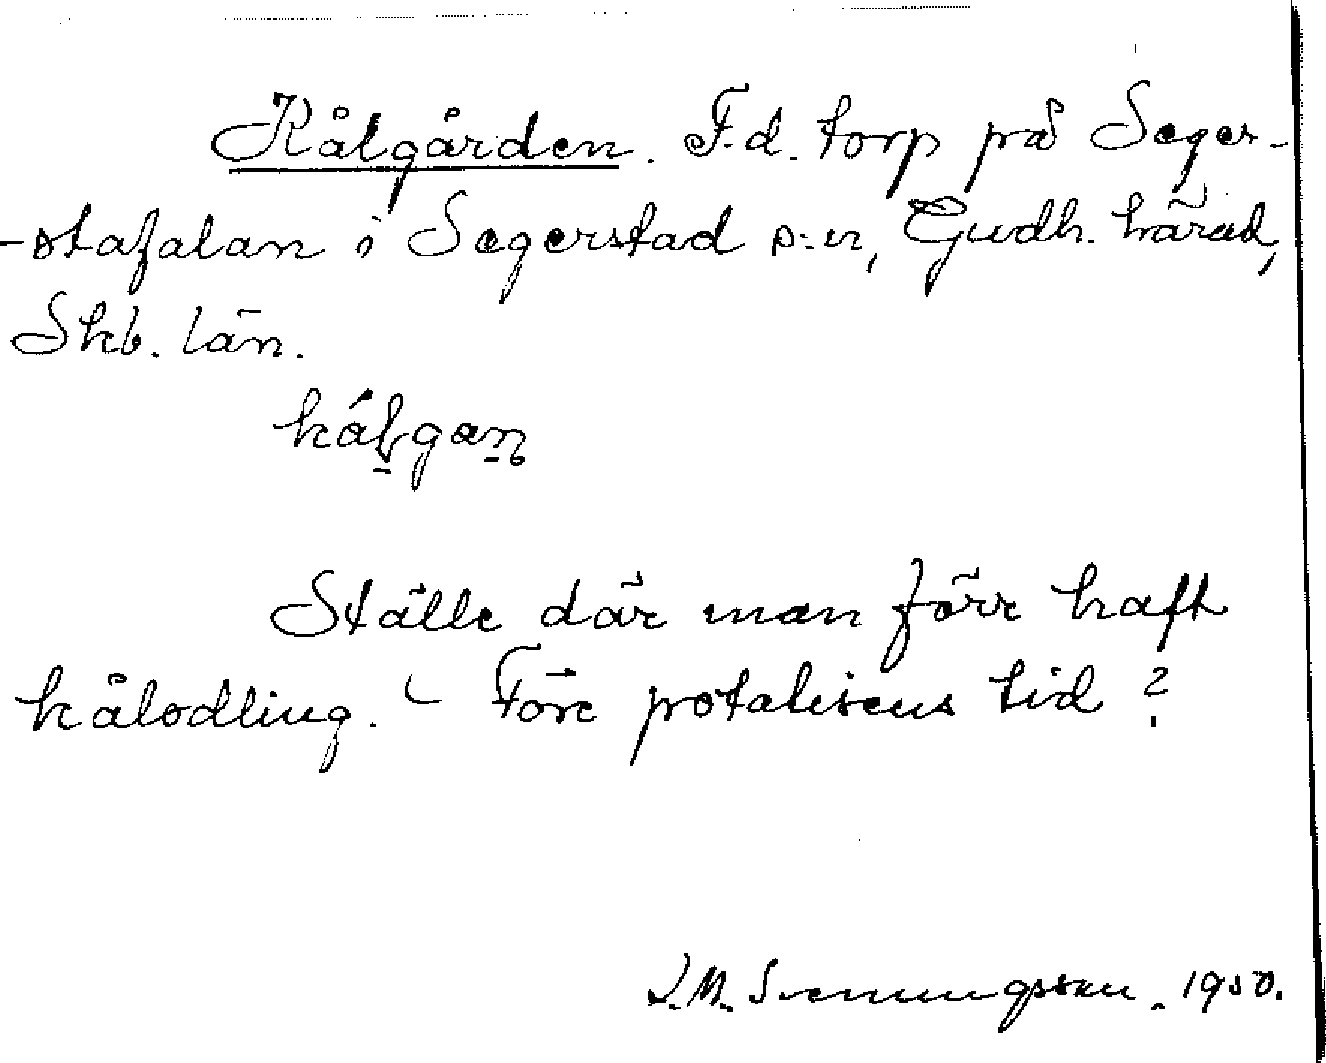 Kålgården. F.d. torp på Seger-
-stafalan i Segerstad s:n, Gudh. härad,
Skb. län.
kålgan
Ställe där man förr haft
kålodling. - Före potatisens tid?
Svenningsson. 1950.